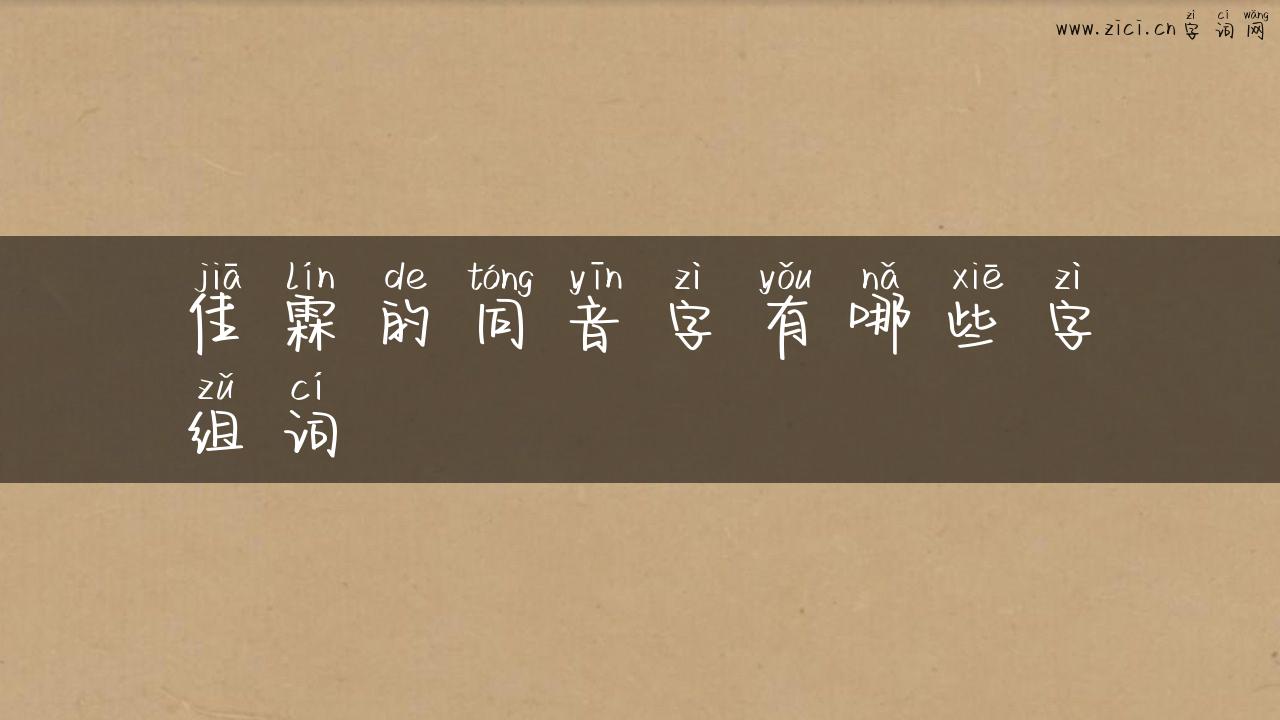 zì cí wǎng
www.zici.cn 字词网
jiā lín de tóng yīn zì yǒu nǎ xiē zì
佳霖的同音字有哪些字
zǔ cí
组词